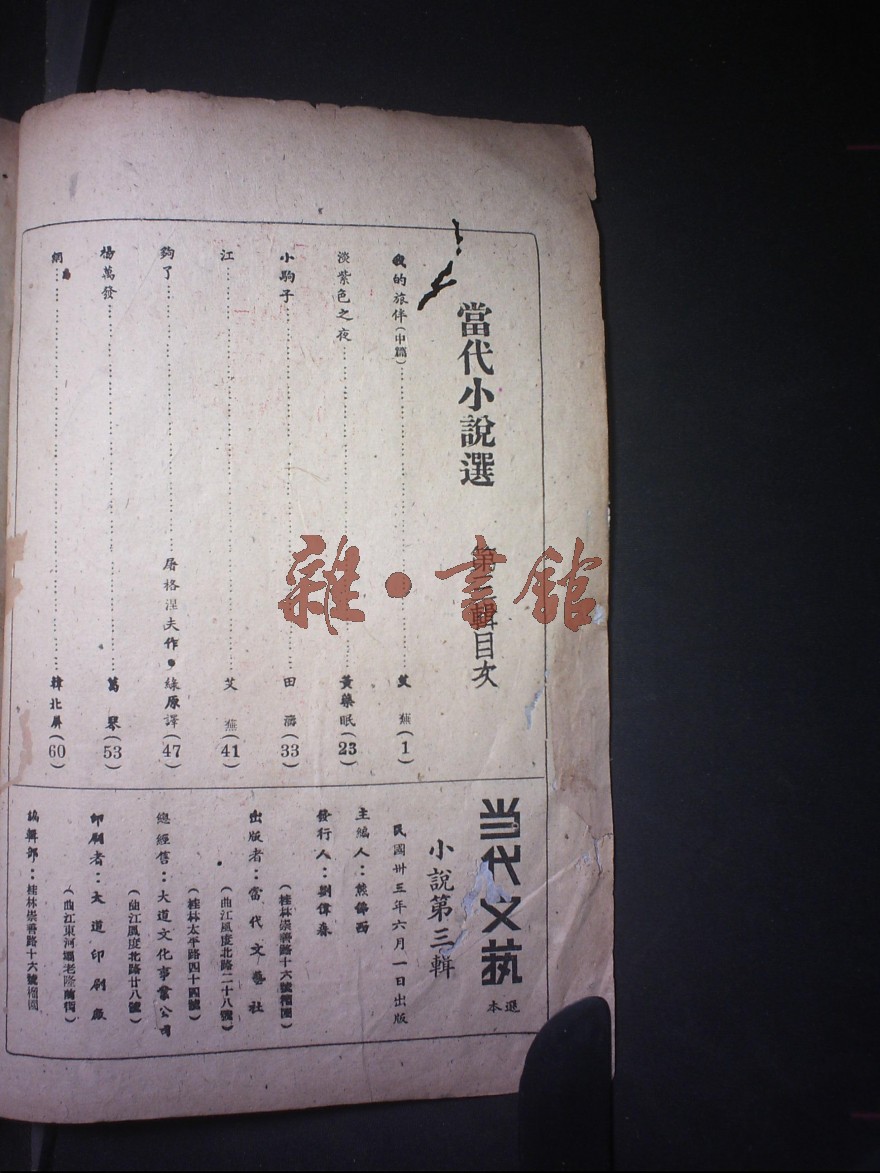 當代小說選　第三輯目次
我的旅伴(中篇)……艾　蕪(1)
淡紫色之夜……黃藥眠(23)
小駒子……田　濤(33)
江……艾　蕪(41)
夠了……屠格涅夫作・綠原譯(47)
楊萬發……葛　琴(53)
網……韓北屏(60)
雜・書館
当代文執
選本
小說第三輯
民國卅三年六月一日出版
主編人：熊佛西
發行人：劉偉森
(桂林崇善路十六號榴園)
出版者：當代文藝社
(曲江風度北路二十八號)
(桂林太平路四十四號)
總經售：大道文化事業公司
(曲江風度北路廿八號)
印刷者：大道印刷廠
(曲江東河壩老隆)
編輯部：桂林崇善路十六號榴園